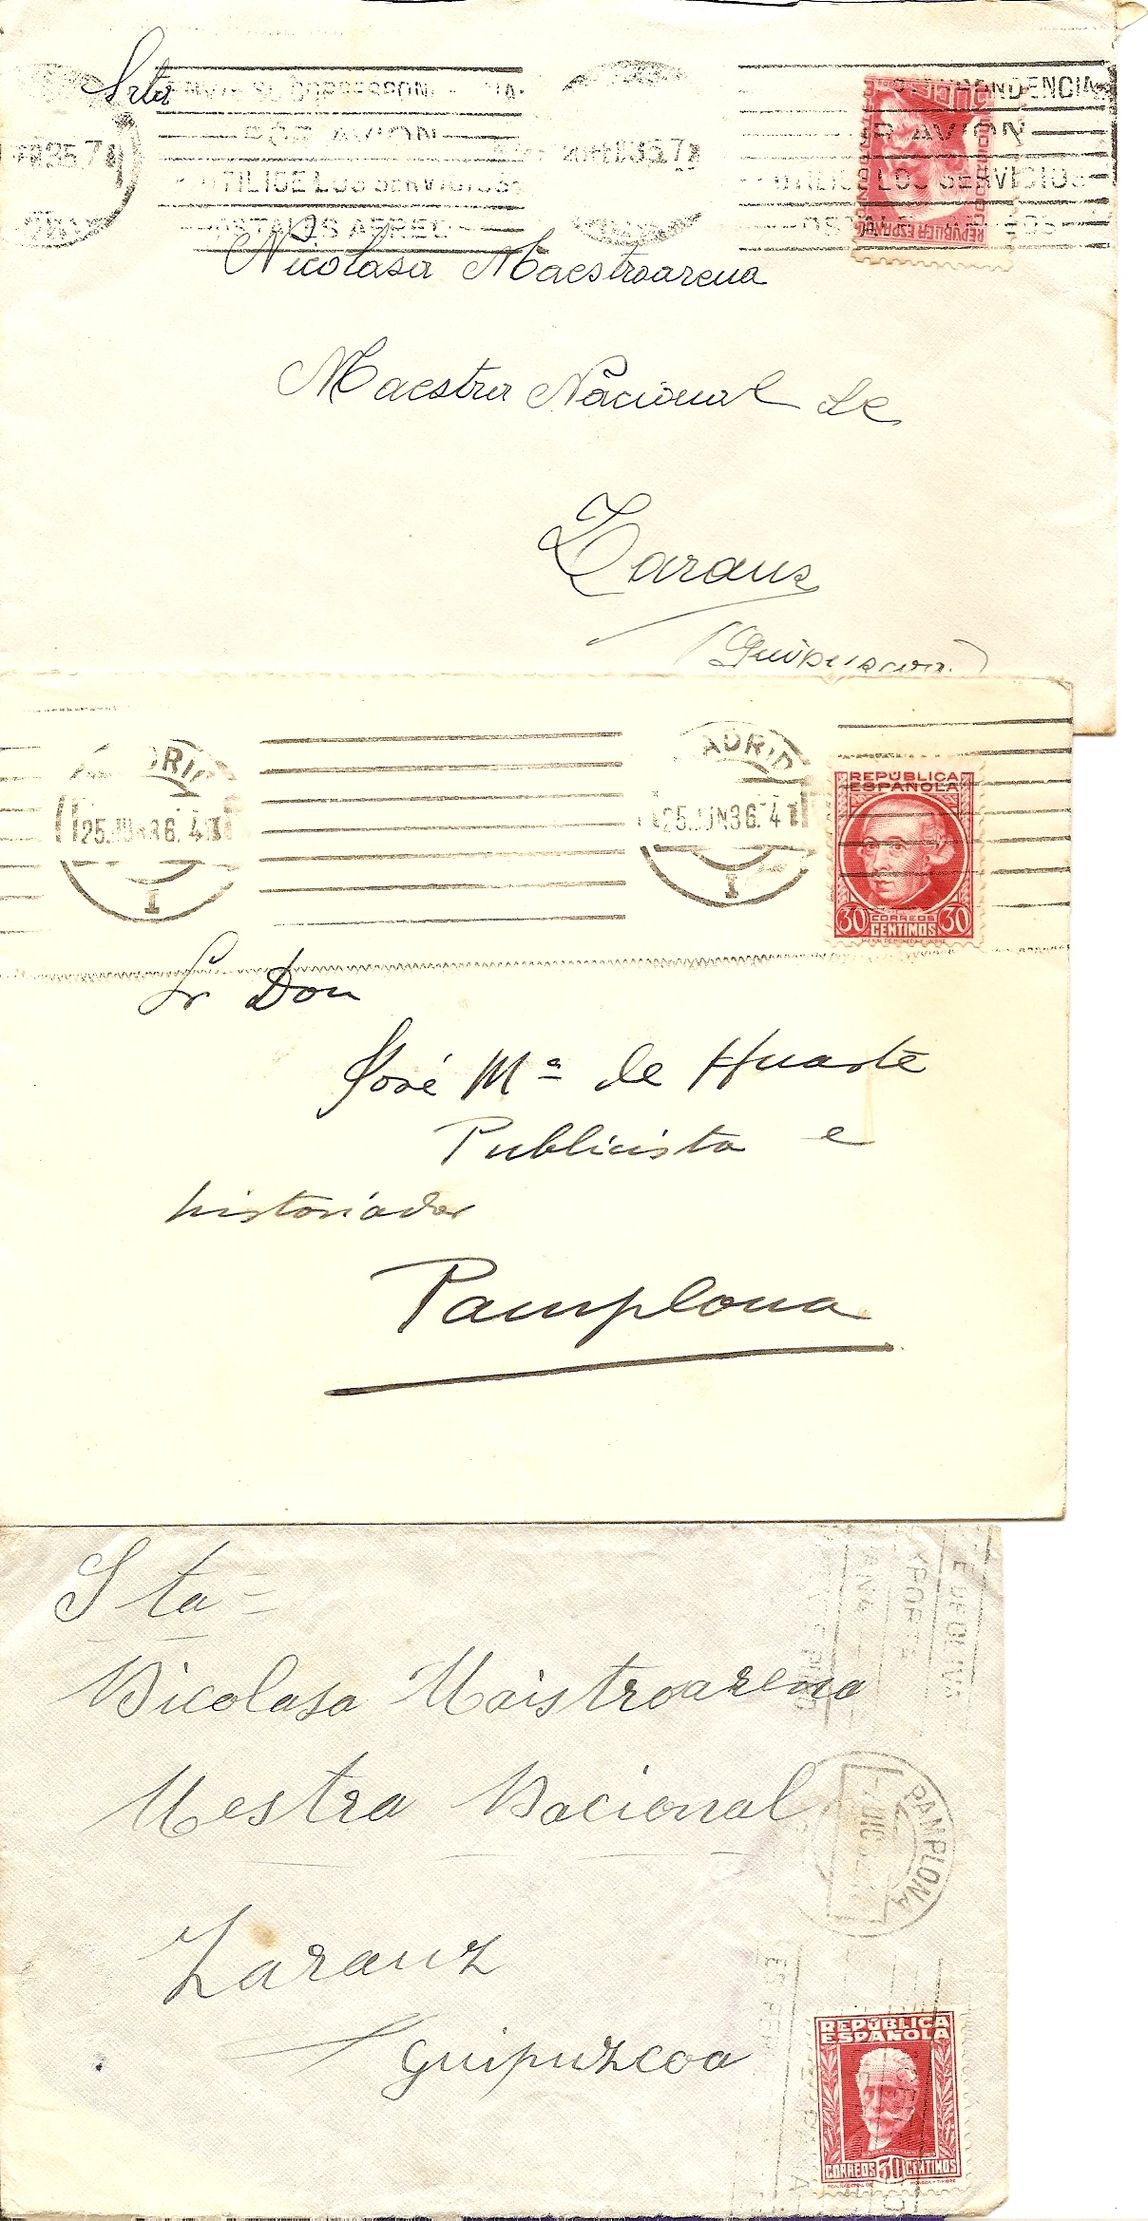 Srta
POR AVION
UTILICE LOS SERVICIOS
35.7
REPVBLICA ESPAÑOLA
Nicolasa Maestroarena
Maestra Nacional de
Zarauz
(Guipuzcoa)
MADRID
25.JUN36.4T
I
MADRID
25.JUN36.4T
I
REPUBLICA
ESPAÑOLA
30 CORREOS 30
CENTIMOS
Sr Don
José Mª de Huarte
Publicista e
historiador
Pamplona
Sta
Nicolasa Maistroarena
Mestra Nacional
Zarauz
Guipuzcoa
PAMPLONA
DIC
REPÚBLICA
ESPAÑOLA
CORREOS 30 CENTIMOS